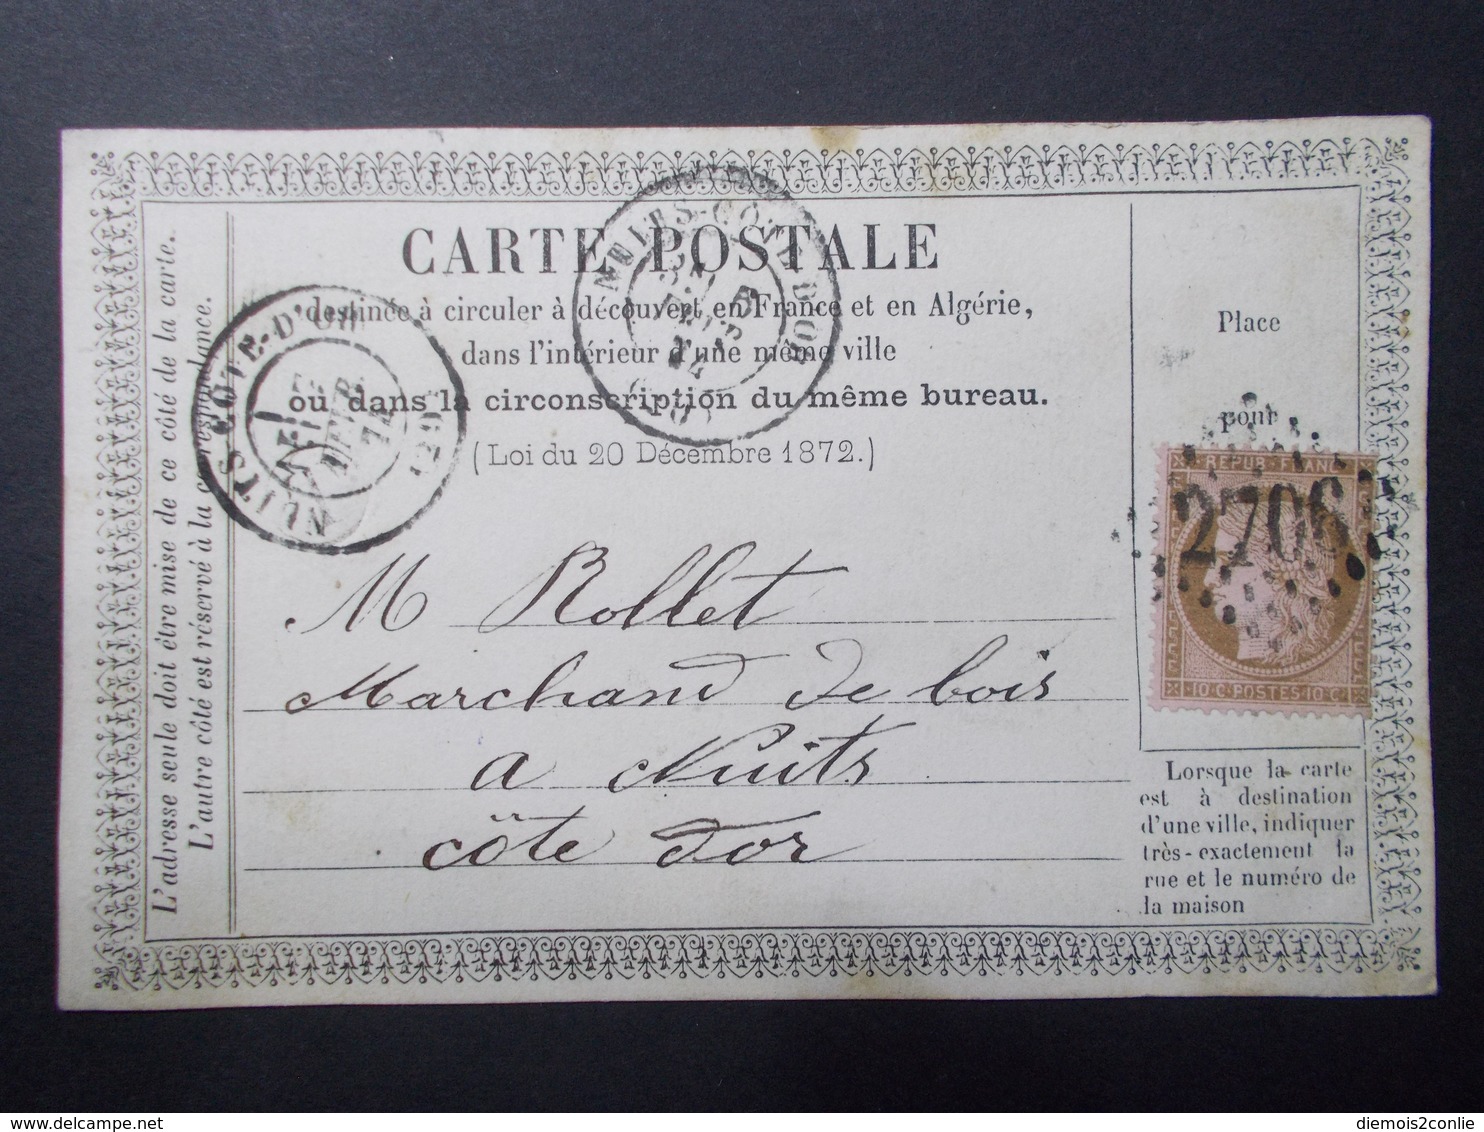 CARTE POSTALE
destinée à circuler à découvert en France et en Algérie,
dans l'intérieur d'une même ville
ou dans la circonscription du même bureau.
(Loi du 20 Décembre 1872.)
L'adresse seule doit être mise de ce côté de la carte.
L'autre côté est réservé à la correspondance.
NUITS-CÔTE-D'OR
FEVR
74
NUITS CÔTE-D'OR
FEVR
74
Place
pour
REPUB·FRANC
2706
10·C·POSTES·10·C
M Rollet
Marchand de bois
a Nuits
côte d'or
Lorsque la carte
est à destination
d'une ville, indiquer
très-exactement la
rue et le numéro de
la maison
diemois2conlie